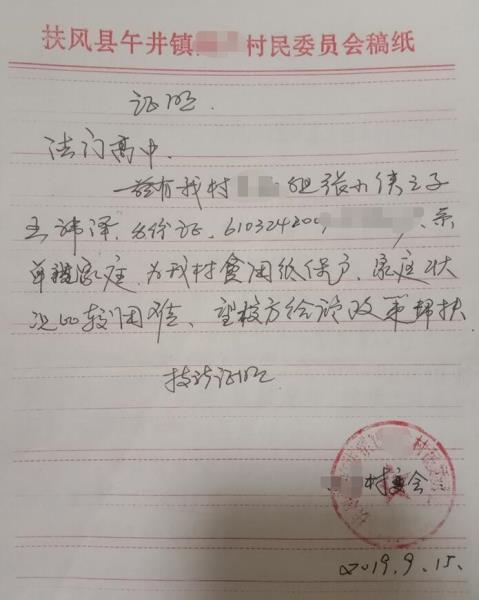 扶风县午井镇 村民委员会稿纸
证明.
法门高中.
兹有我村 组张小侠之子
王沛泽. 身份证. 610324200 , 系
单亲家庭 为我村食用低保户. 家庭状
况比较困难、望校方给予政策帮扶.
特此证明
村委会
2019.9.15.